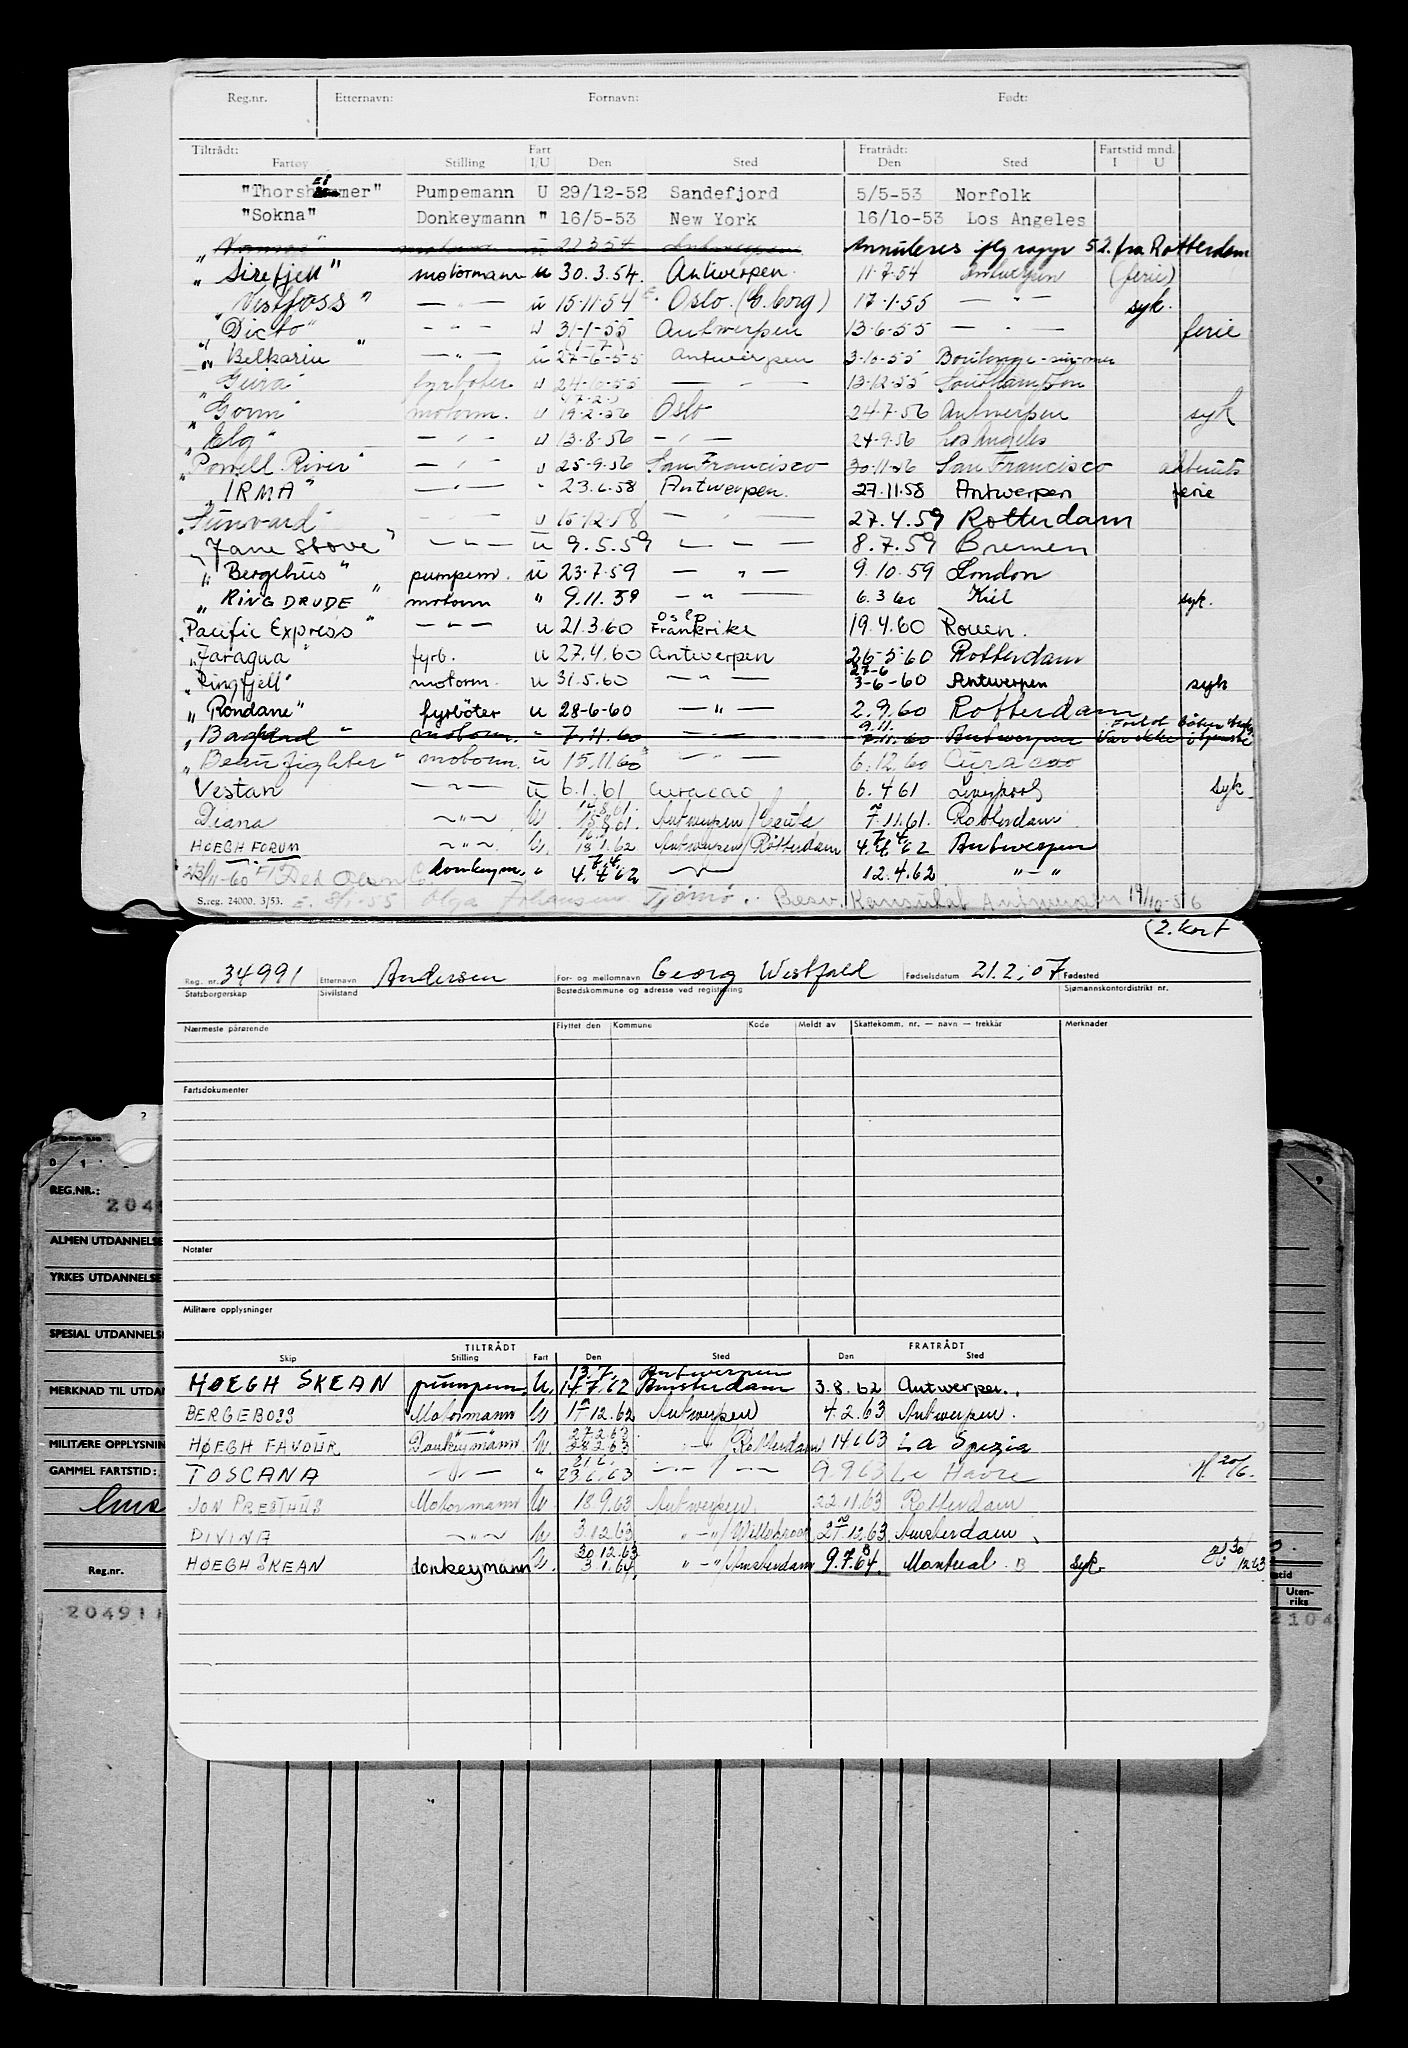 Reg.nr. Etternavn: Fornavn: Født:
Tiltrådt: Fart Fratrådt: Fartstid mnd.
Fartøy Stilling I/U Den Sted Den Sted I U
"Thorsh mer" Pumpemann U 29/12-52 Sandefjord 5/5-53 Norfolk
"Sokna" Donkeymann " 16/5-53 New York 16/10-53 Los Angeles
u 22.3.54 Antwerpen Annuleres iflg rapp 5.2. fra Rotterdam
"Sirefjell" motormann u 30.3.54. Antwerpen. 11.7.54 Antwerpen (ferie)
"Vestfoss" — " — u 15.11.54 Oslo. (G.borg) 17.1.55 — " — syk.
"Dicto" — " — u 31-1-55 Antwerpen 13-6-55 — " — ferie
"Belkarin" — " — u 27-6-55 Antwerpen 3-10-55 Boulogne-sur-mer
"Gura" fyrbøter u 24-10-55 — " — 13-12-55 Southampton
"Gorm" motorm. u 19-2-56 Oslo 24-7-56 Antwerpen syk
"Elg" — " — u 13-8-56 — " — 24-9-56 Los Angeles
"Powell River" — " — u 25-9-56 San Francisco 30-11-56 San Francisco
"IRMA" — " — " 23.6.58 Antwerpen. 27.11.58 Antwerpen ferie
"Sunvard" — " — u 15.12.58 — " — 27.4.59 Rotterdam
"Jane Stove" — " — u 9.5.59 — " — 8.7.59 Bremen
"Bergehus" pumpem. u 23.7.59 — " — 9.10.59 London
"RINGDRUDE" motorm " 9.11.59 — " — 6.3.60 Kiel syk.
"Pacific Express" — " — u 21.3.60 Oslo Frankrike 19.4.60 Rouen.
"Taragua" fyrb. u 27.4.60 Antwerpen 26-5-60 Rotterdam
"Ringfjell" motorm. u 31.5.60 — " — 27-6 3-6-60 Antwerpen syk
"Rondane" fyrbøter u 28-6-60 — " — 2.9.60 Rotterdam
motorm. " 7.11.60 — " — 9.11. 7.11.60 Antwerpen Var ikke
"Beaufighter" motorm. u 15.11.60 — " — 6.12.60 Curacao
Vestan — " — u 6.1.61 Curacao 6.4.61 Liverpool syk
Diana — " — U. 15.8.61. Antwerpen/Ceuta 7.11.61. Rotterdam
HØEGH FORUM — " — U. 18.1.62 Antwerpen/Rotterdam 4.4.62 Antwerpen
donkeym. " 4.4.62 — " — 12.4.62 " — "
S.reg. 24000. 3/53. E. 8/1-55 Olga Johansen Tjøme. Besv. Konsulat Antwerpen 19/10-56
2. kort
Reg. nr. 34991 Etternavn Andersen For- og mellomnavn Georg Westfald Fødselsdatum 21.2.07 Fødested
Statsborgerskap Sivilstand Bostedskommune og adresse ved registrering Sjømannskontordistrikt nr.
Nærmeste pårørende Flyttet den Kommune Kode Meldt av Skattekomm. nr. — navn — trekkår Merknader
Fartsdokumenter
Notater
Militære opplysninger
TILTRÅDT FRATRÅDT
Skip Stilling Fart Den Sted Den Sted
HØEGH SKEAN pumpem. U. 13.7. 14.7.62 Antwerpen Amsterdam 3.8.62 Antwerpen.
BERGEBOSS Motormann U 12.62 Antwerpen 4.2.63 Antwerpen.
HØEGH FAVØUR Donkeymann U 27.2.63 28.2.63 " — " /Rotterdam 14.6.63 La Spezia
TOSCANA — " — " 21.6. 23.6.63 — " — / — " — 9.9.63 Le Havre 20/6.
JON PRESTHUS Motormann U 18.9.63 Antwerpen 22.11.63 Rotterdam
DIVINA — " — U 3.12.63 " — " /Willebroek 12.63 Amsterdam
HØEGH SKEAN donkeymann U. 30.12.63 3.1.64 " — " /Amsterdam 9.7.64. Montreal. B syk. 30/12.63
REG.NR.: 2049
ALMEN UTDANNELSE
YRKES UTDANNELSE
SPESIAL UTDANNELSE
MERKNAD TIL UTDAN
MILITÆRE OPPLYSNIN
GAMMEL FARTSTID:
Reg.nr.
204911
Uten-
riks
2104